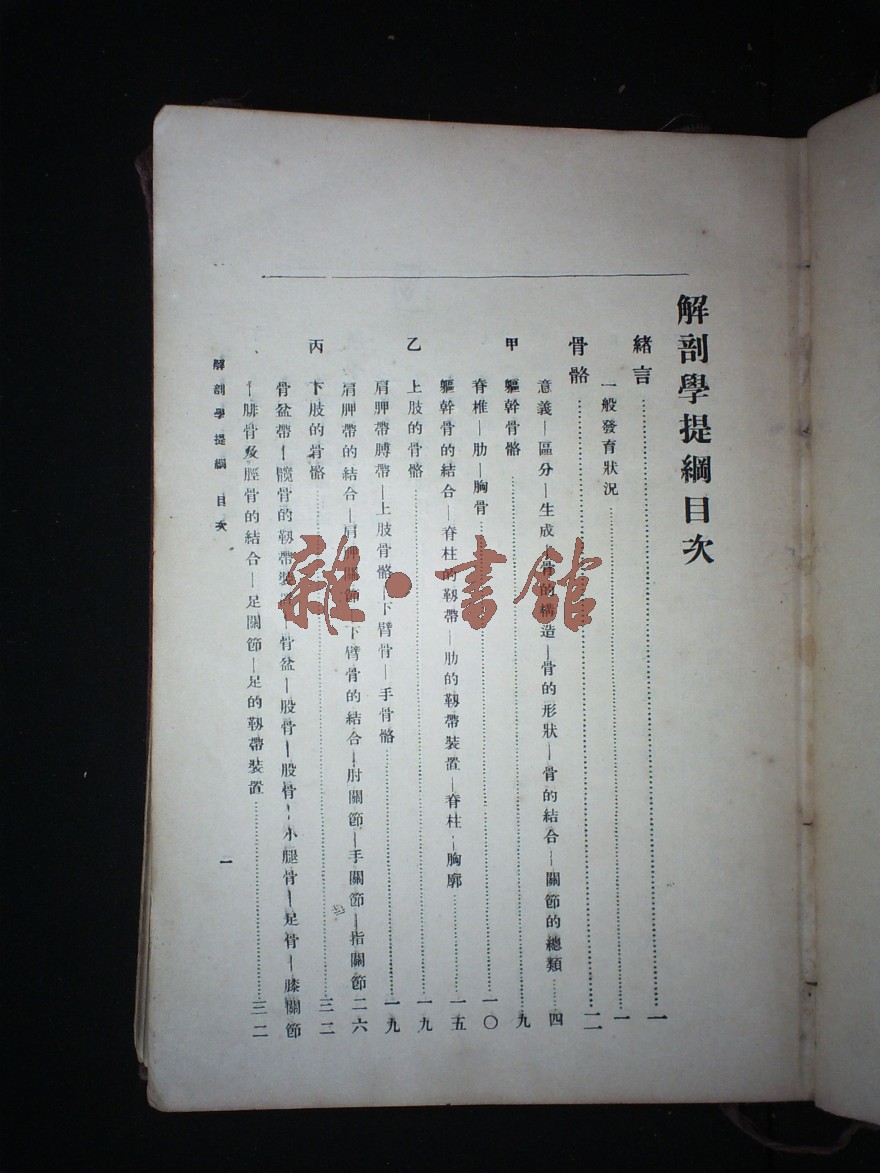 解剖學提綱目次
緒言……一
一般發育狀況……一
骨骼……二
意義—區分—生成—骨的構造—骨的形狀—骨的結合—關節的總類……四
甲 軀幹骨骼……九
脊椎—肋—胸骨……一〇
軀幹骨的結合—脊柱的韌帶—肋的韌帶裝置—脊柱—胸廓……一五
乙 上肢的骨骼……一九
肩胛帶膊帶—上肢骨骼—下臂骨—手骨骼……一九
肩胛帶的結合—肩胛關節—下臂骨的結合—肘關節—手關節—指關節 二六
丙 下肢的骨骼……三二
骨盆帶—髖骨的韌帶裝置—骨盆—股骨—股骨—小腿骨—足骨—膝關節
—腓骨及脛骨的結合—足關節—足的韌帶裝置……三二
解剖學提綱 目次
一
雜·書館